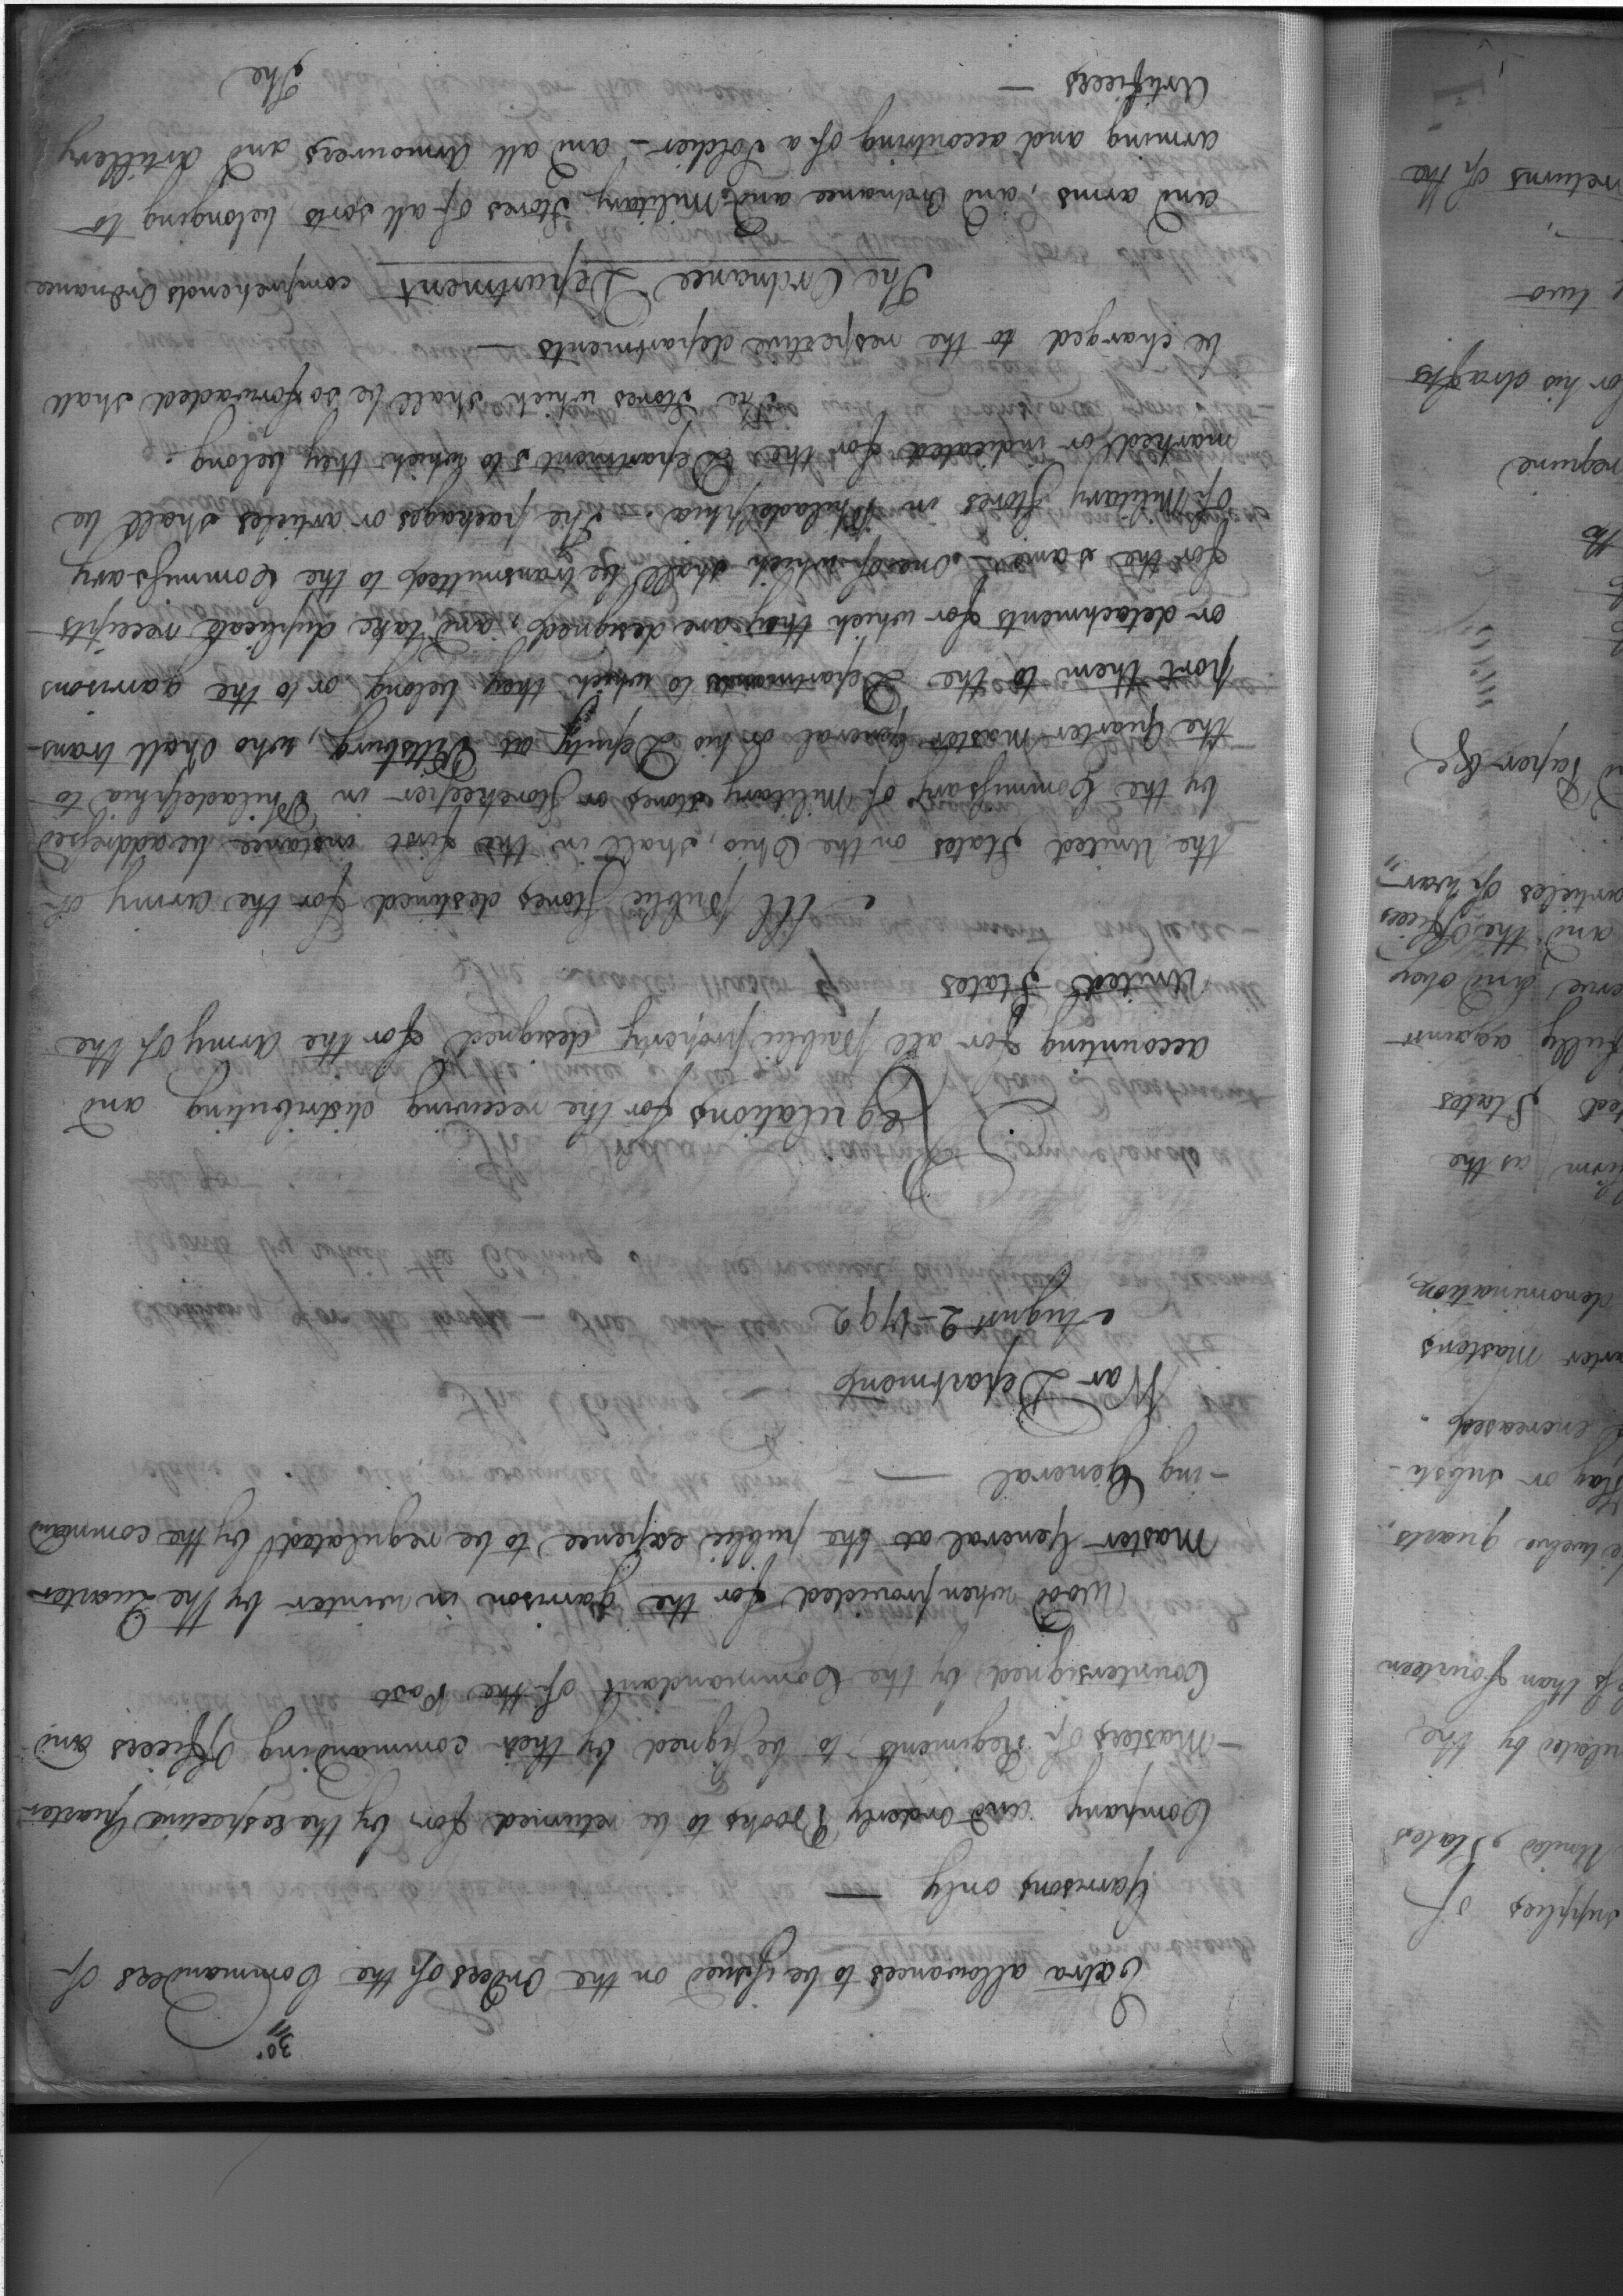 30.
Extra allowances to be issued on the Orders of the Commanders of
Garrisons only —
Company and orderly Books to be returned for by the respective Quarter
-Masters of Regiments, to be signed by their commanding Officers and
Countersigned by the Commandant of the Post
Wood when provided for the Garrison in winter by the Quarter
Master General at the public expence, to be regulated by the command
-ing General —
War Department
August 2 - 1792
Regulations for the receiving distributing and
accounting for all Public property designed for the Army of the
United States
All public Stores destined for the army of
the United States on the Ohio, shall in the first instance be addressed
by the Commissary of Military stores or Storekeeper in Philadelphia to
the Quarter Master General or his Deputy at Pittsburg, who shall trans-
port them to the Departments to which they belong or to the garrisons
or detachments for which they are designed, and take duplicate receipts
for the same — One of which shall be transmitted to the Commissary
of Military Stores in Philadelphia. The packages or articles shall be
marked or indicated for the Departments to which they belong.
The Stores which shall be so forwarded shall
be charged to the respective departments —
The Ordnance Department comprehends Ordnance
and arms, and Ordnance and Military Stores of all sorts belonging to
arming and accoutring of a Soldier — and all Armourers and Artillery
Artificers —
The
supplies of
United States
by the
than fourteen
twelve quarts
or substi-
encreased.
Masters
denomination,
as the
States
fully against
and obey
and the Officers
articles of War"
Paper &c
the
require
for his drafts
two
returns of the